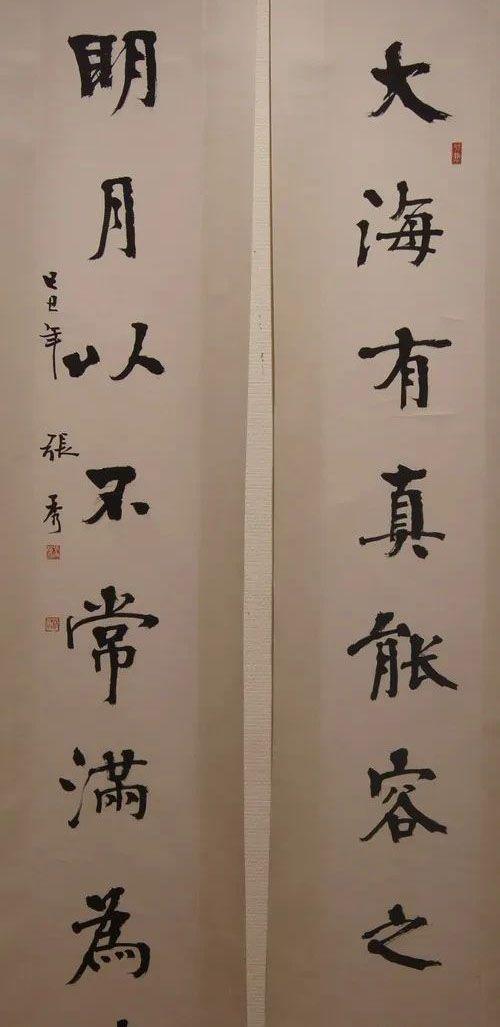 大海有真能容之
明月以不常滿為
己丑年 張秀